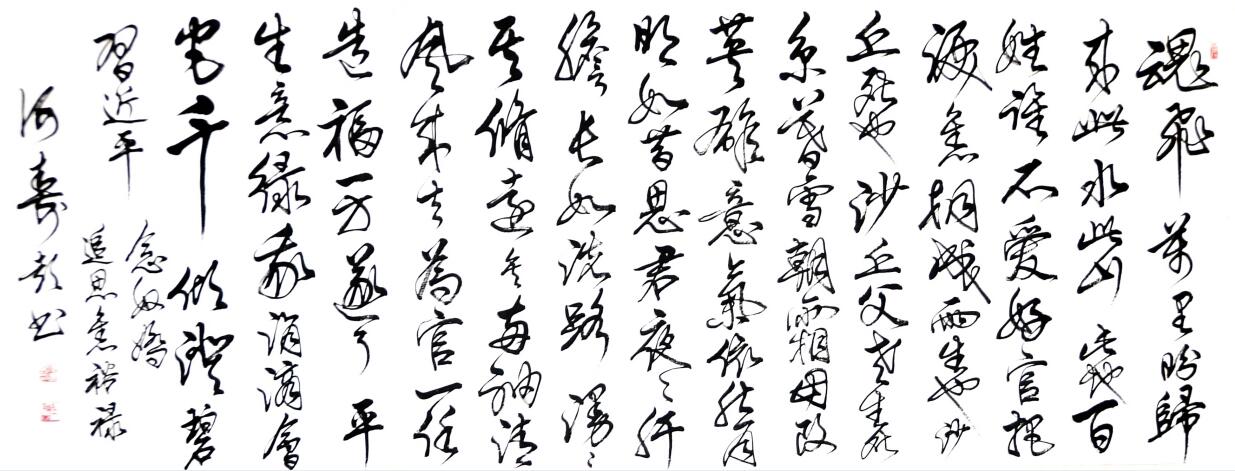 魂飛萬里盼歸
来此水此山此地百
姓谁不爱好官把
泪焦桐成雨生也沙
丘死也沙丘父老生死
系暮雪朝霜毋改
英雄意氣依然月
明如昔思君夜々肝
膽长如洗路漫々
其脩远矣两袖清
风来去為官一任
造福一方遂了平
生意绿我涓滴會
它千顷澄碧
念奴嬌
追思焦裕禄
習近平
寿彭书